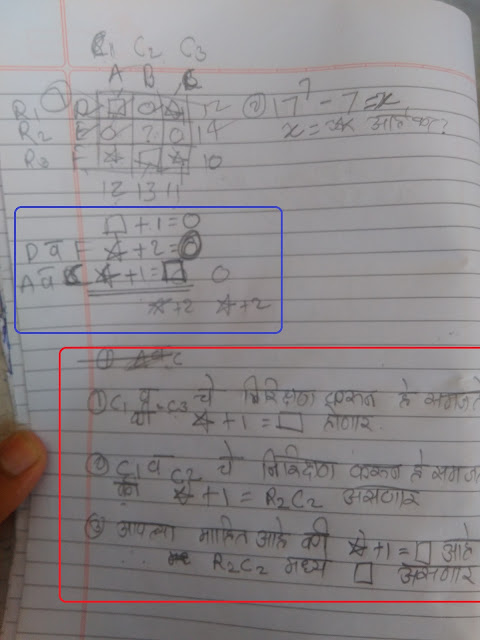 C1 C2 C3
A B C
① R1 D □ 0 ☆ 12 ② 17⁷ - 7 = x
R2 E 0 ? 0 14 x =
R3 F ☆ □ ☆ 10
12 13 11
□ + 1 = 0
D व F ☆ + 2 = 0
A व C ☆ + 1 = □ 0
☆+2 ☆+2
① C1 व C3 चे निरिक्षण करून हे समजते
की ☆ + 1 = □ होणार.
② C1 व C2 चे निरिक्षण करून हे समजते
की ☆ + 1 = R2C2 असणार
③ आपल्या माहित आहे की ☆+1 = □ आहे
R2C2 मध्य □ असणार